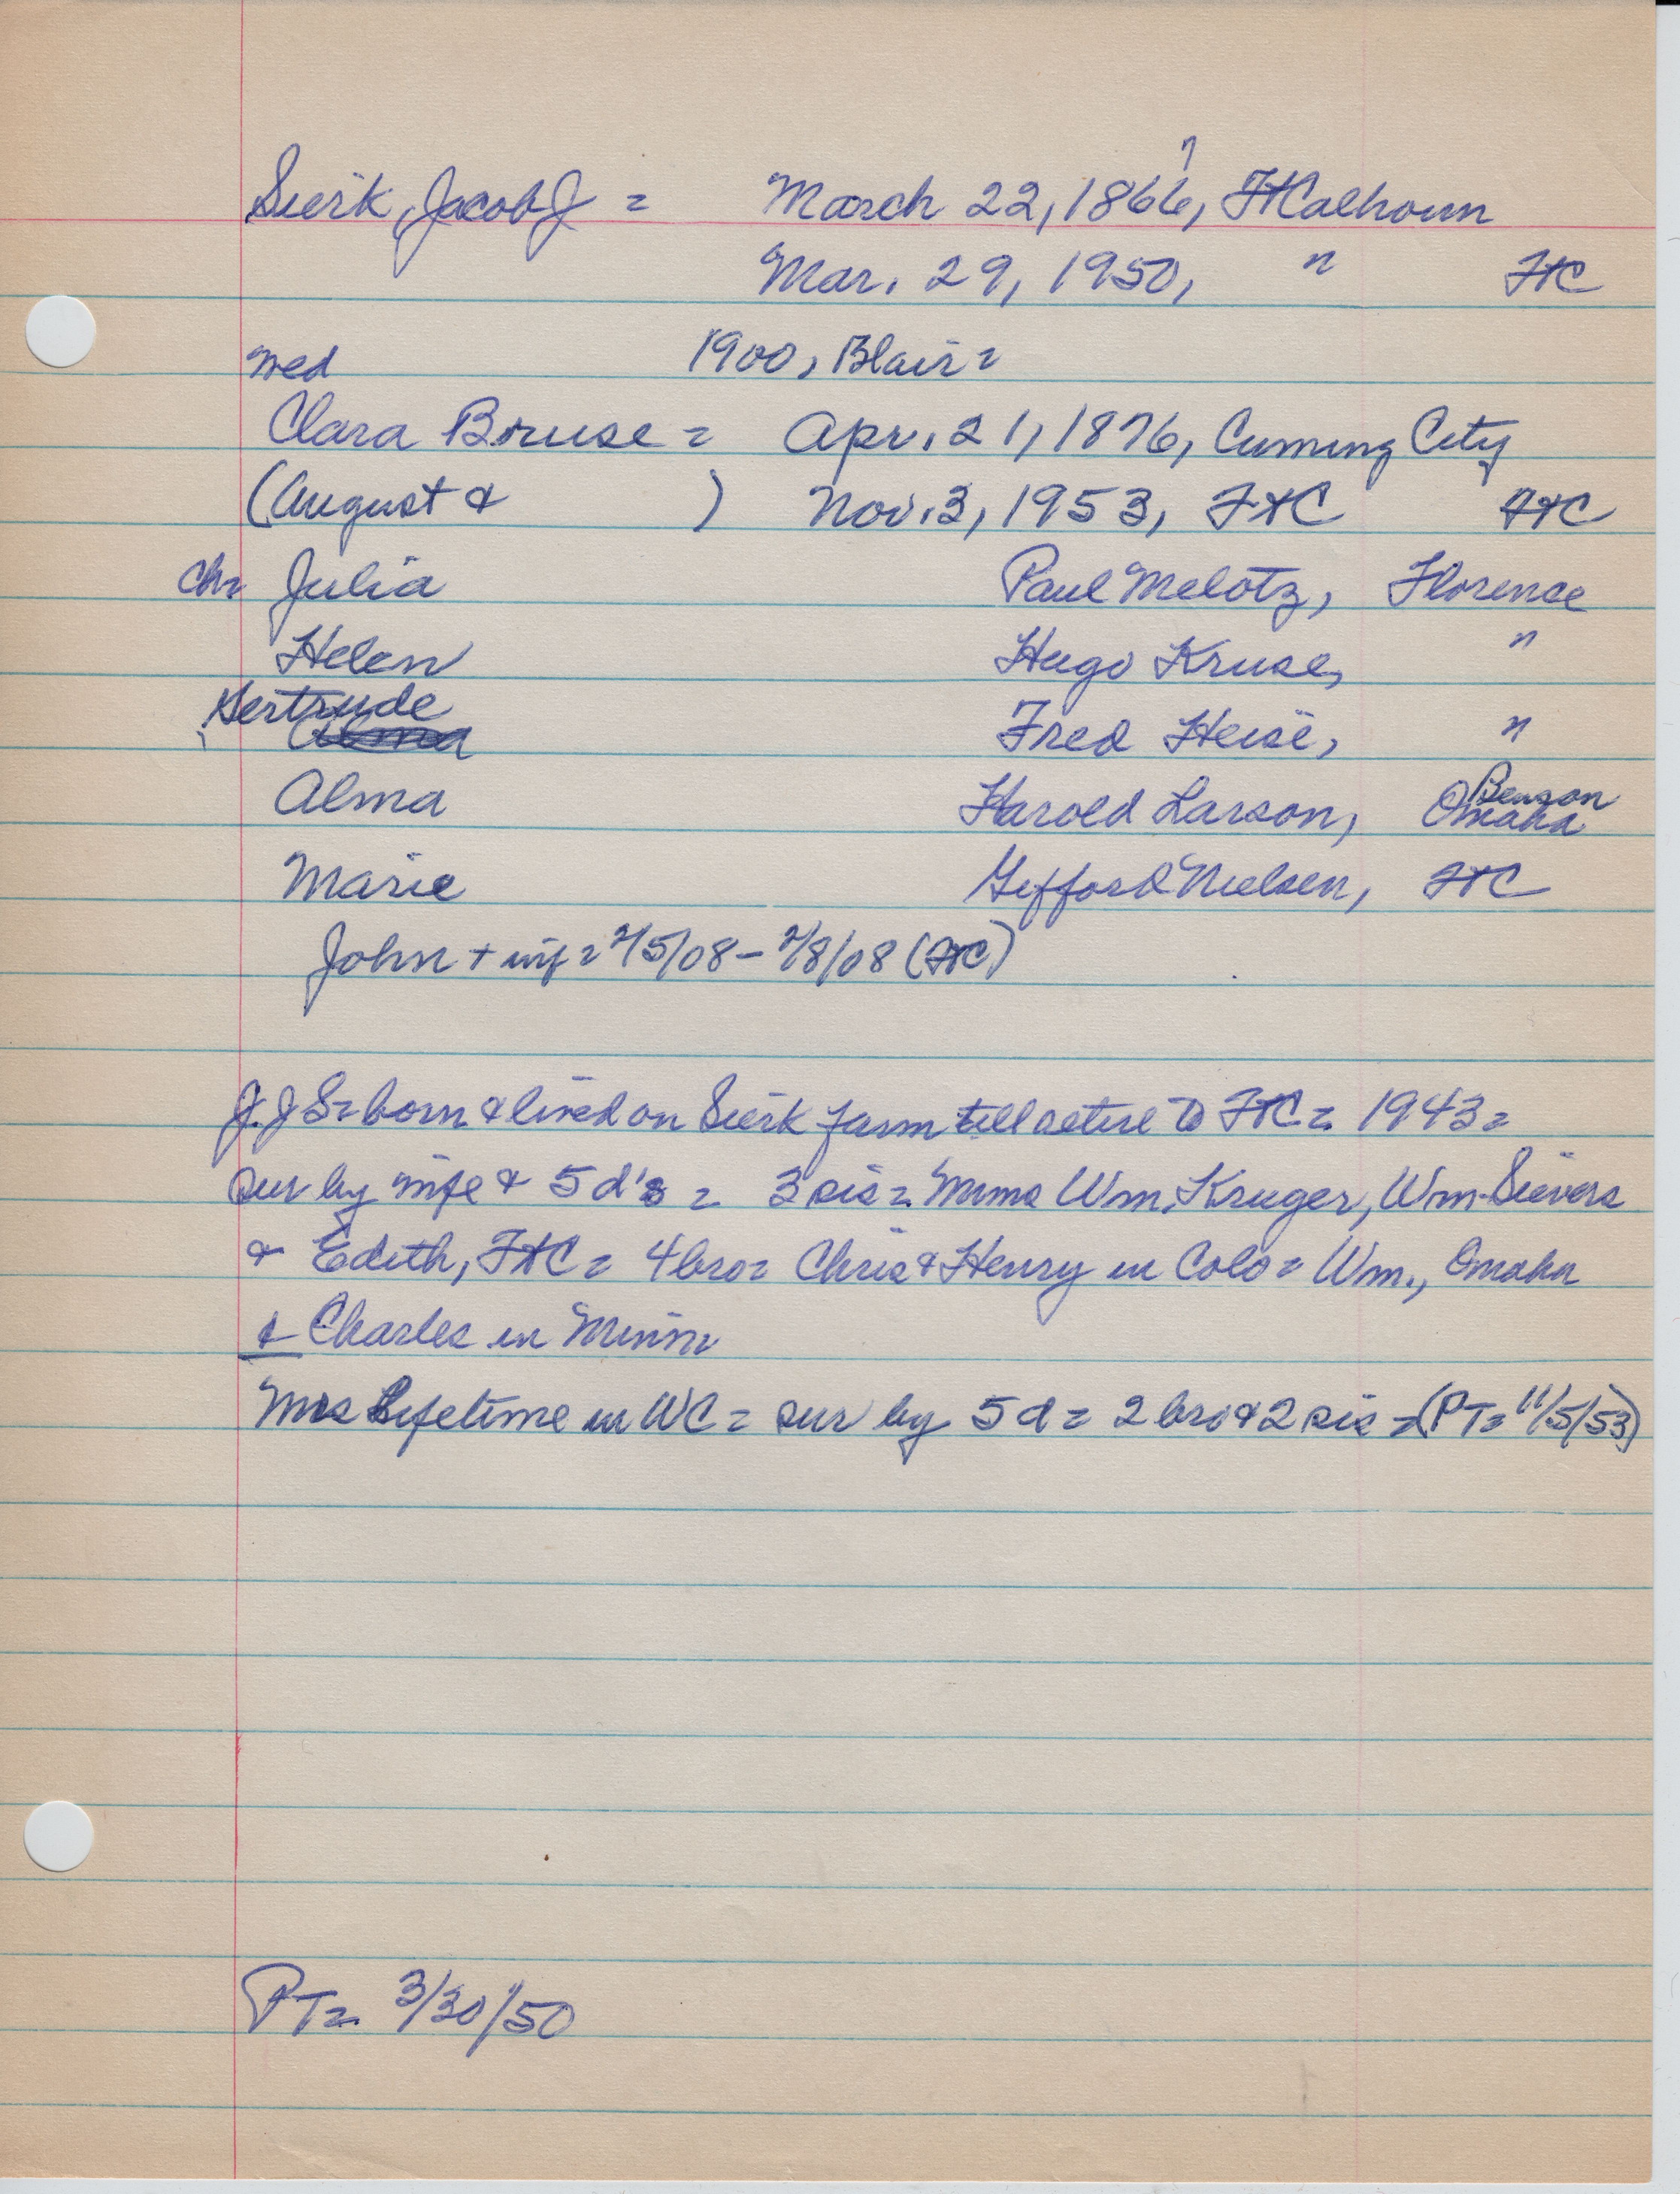 7
Sierk, Jacob J = March 22, 1866, FtCalhoun
Mar. 29, 1950, " FtC
wed 1900, Blair =
Clara Bruse = Apr. 21, 1876, Cuming City
(August & ) Nov. 3, 1953, FtC FtC
Ch= Julia Paul Melotz, Florence
Helen Hugo Kruse, "
Gertrude
Alma Fred Heise, "
Benson
Alma Harold Larson, Omaha
Marie Gifford Nielsen, FtC
John + inf = 2/5/08 - 2/8/08 (FtC)
J. J S = born & lived on Sierk farm till retire to FtC = 1943 =
sur by wife & 5 d's = 3 sis = Mmes Wm. Kruger, Wm. Sievers
& Edith, FtC = 4 bro = Chris & Henry in Colo = Wm., Omaha
& Charles in Minn
Mrs Lifetime in WC = sur by 5 d = 2 bro & 2 sis = (PT = 11/5/53)
PT = 3/30/50